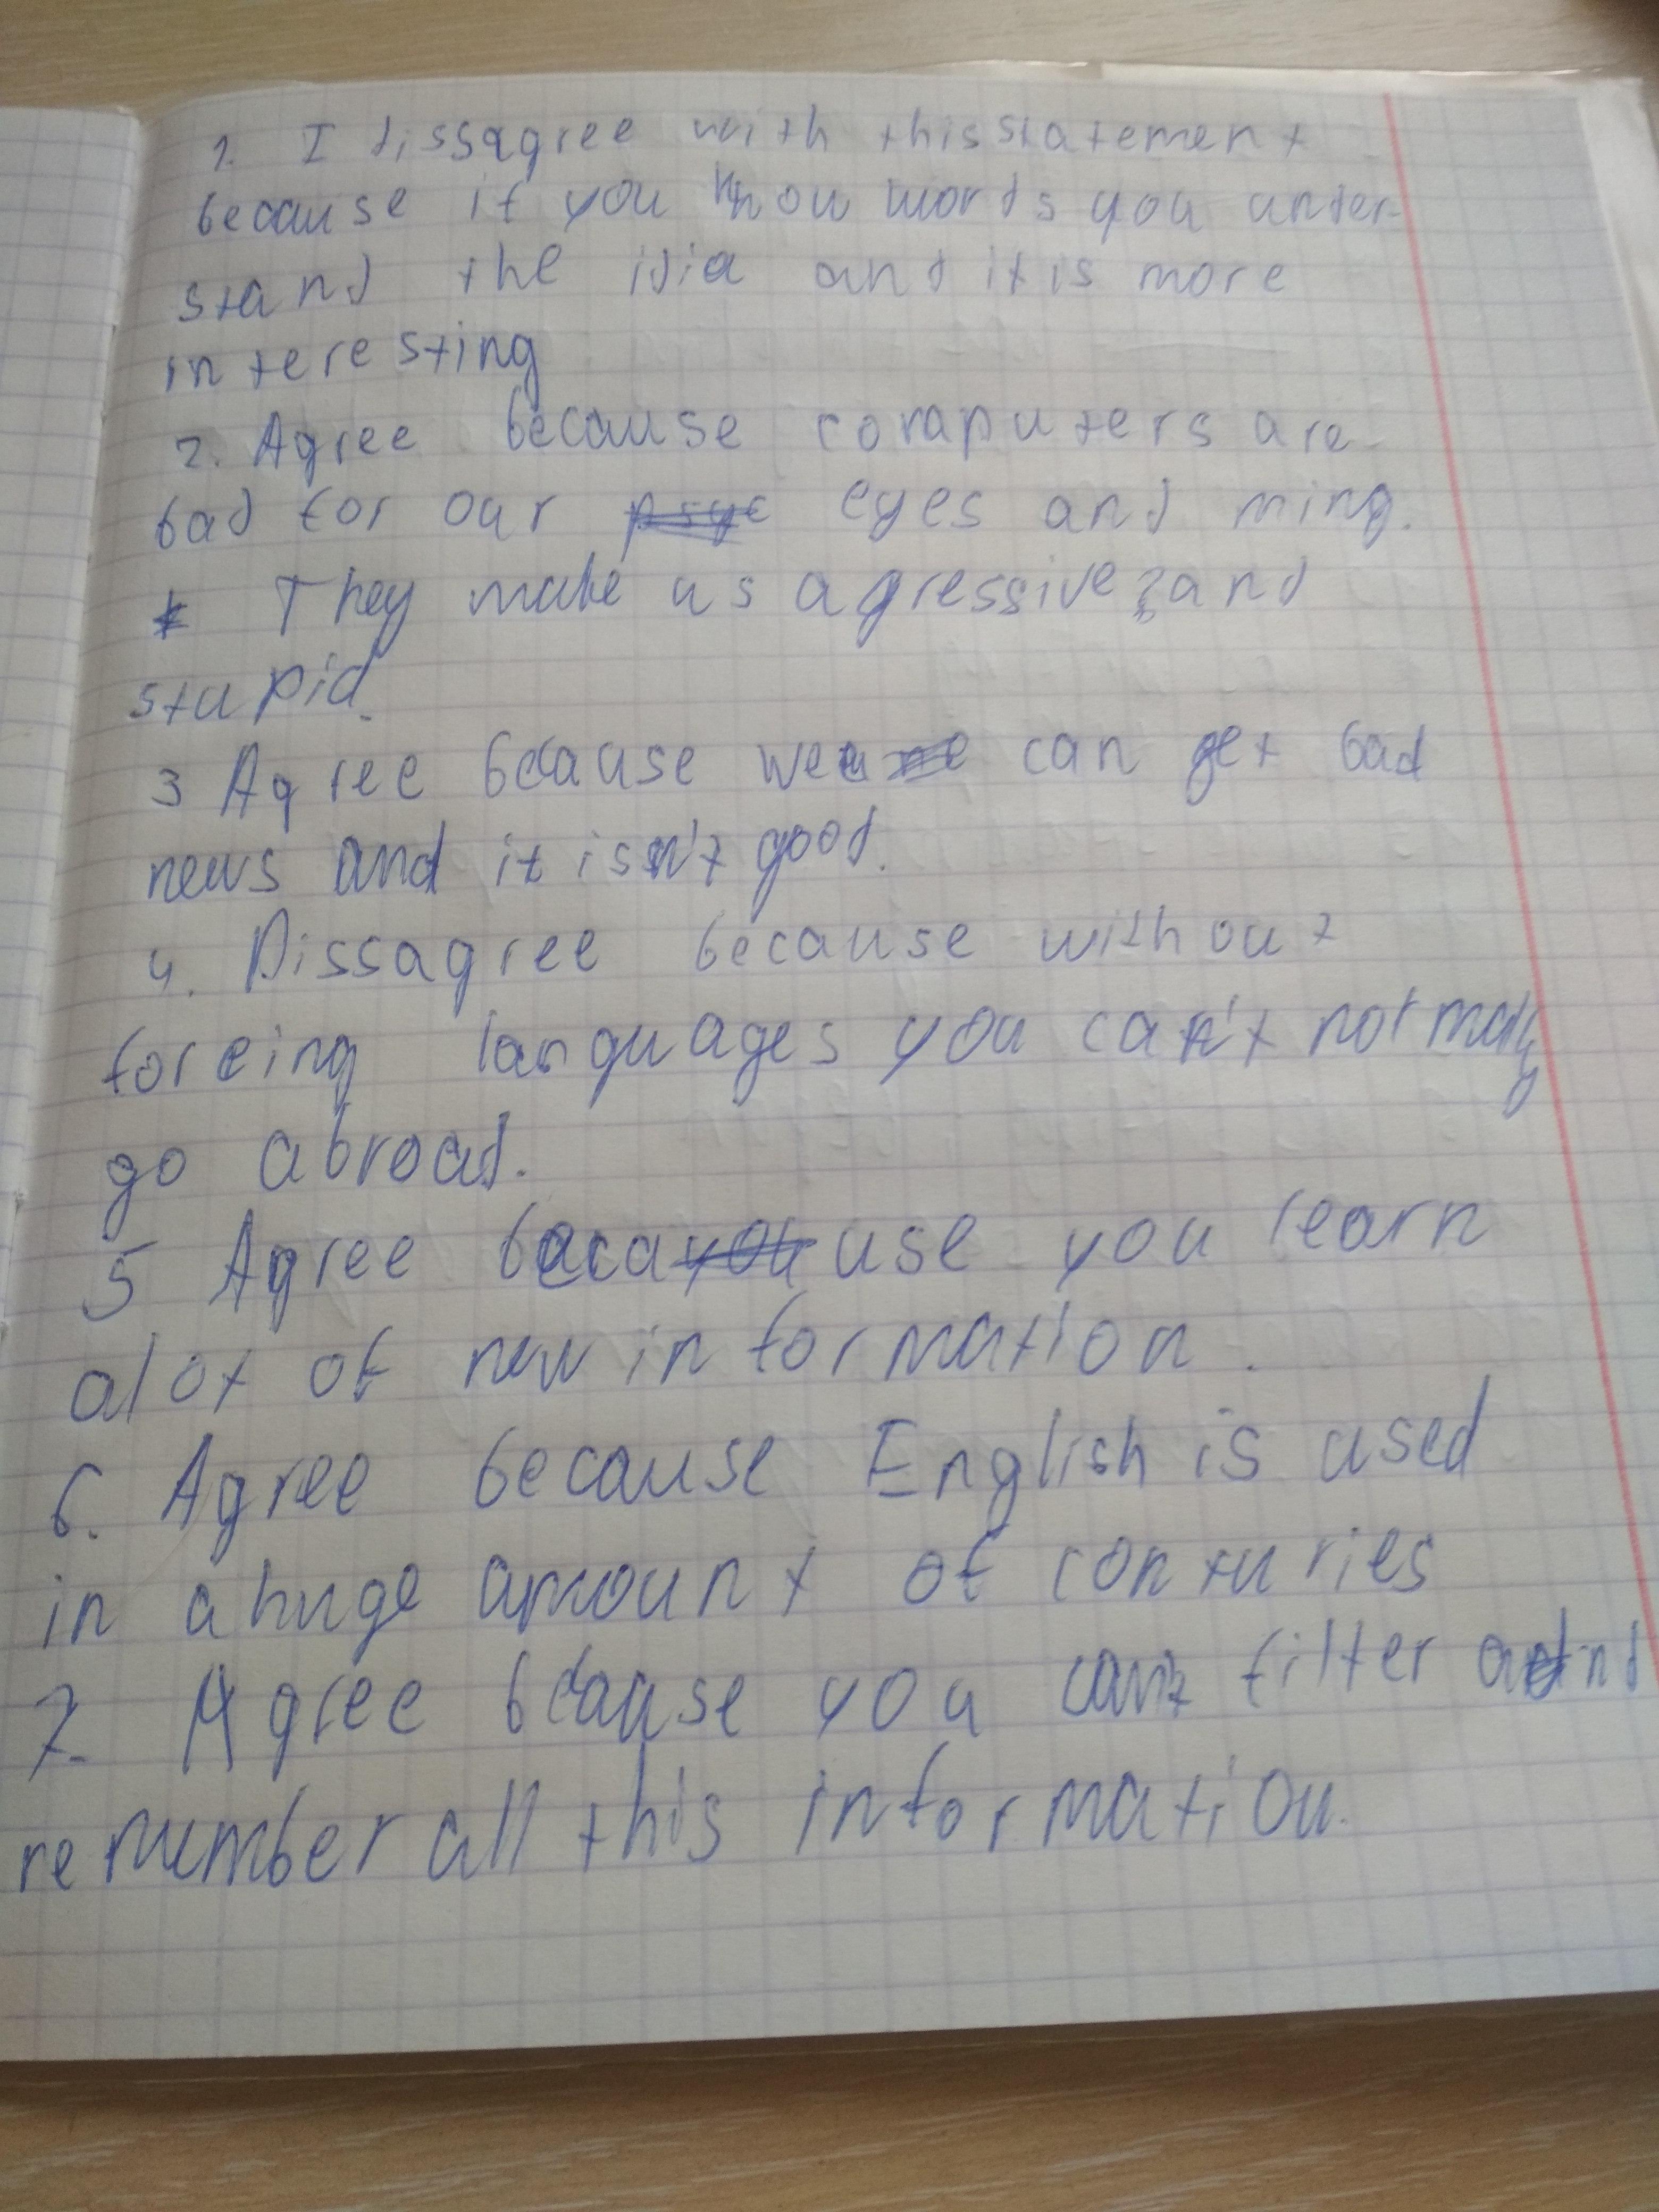 1. I dissagree with this statement
because if you know words you under-
stand the idia and it is more
interesting
2. Agree because computers are
bad for our eyes and ming.
They make us agressive and
stupid.
3 Agree because we can get bad
news and it isn't good.
4. Dissagree because without
foreing languages you can't normaly
go abroad.
5 Agree because you learn
alot of new information.
6. Agree because English is used
in a huge amount of conturies
7. Agree because you can't filter and
remumber all this information.